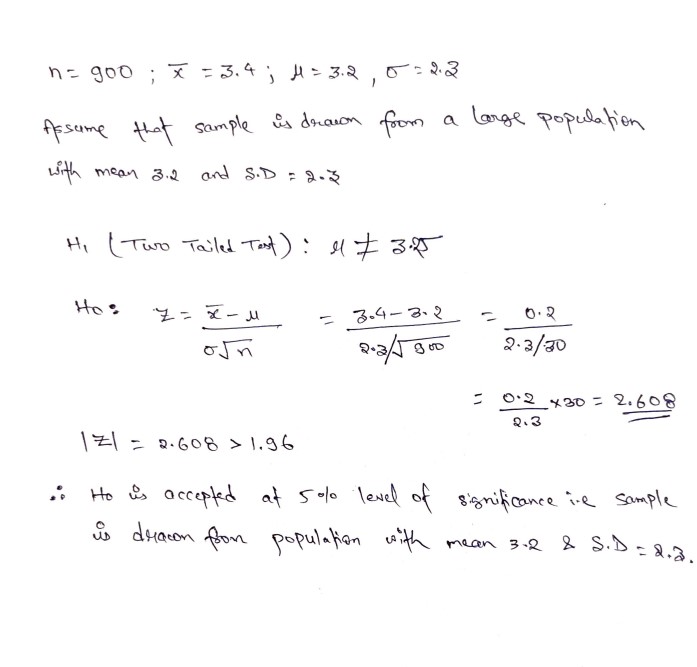 n = 900 ; x̄ = 3.4 ; μ = 3.2 , σ = 2.3
Assume that sample is drawn from a large population
with mean 3.2 and S.D = 2.3
H₁ (Two Tailed Test) : μ ≠ 3.25
Ho : Z = x̄ - μ / σ√n = 3.4 - 3.2 / 2.3/√900 = 0.2 / 2.3/30
= 0.2 / 2.3 × 30 = 2.608
|Z| = 2.608 > 1.96
∴ Ho is accepted at 5% level of significance i.e sample
is drawn from population with mean 3.2 & S.D = 2.3.